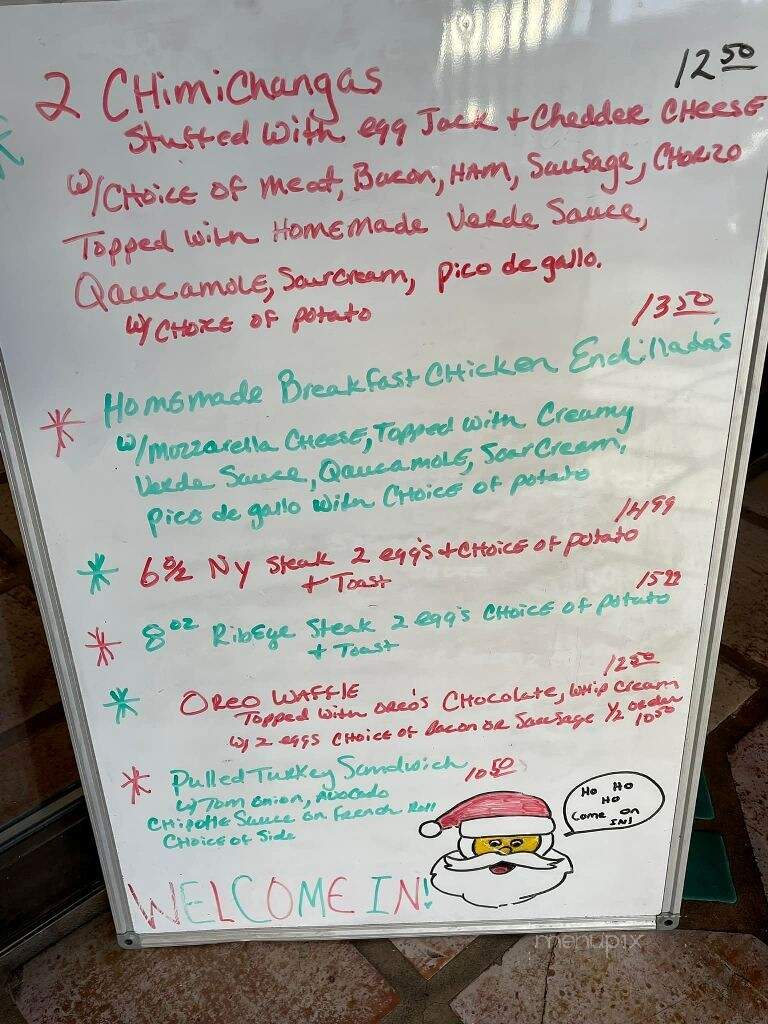 12.50
2 CHimiChangas
Stuffed with egg Jack + Chedder CHEESE
W/CHOICE of meat, Bacon, HAM, Sausage, CHORIZO
Topped with HOMEMADE Verde Sauce,
Qaucamole, Sourcream, pico de gallo.
W/ CHOICE of potato
13.50
* Homemade Breakfast CHicken Enchilladas
W/Mozzarella CHEESE, Topped with Creamy
Verde Sauce, Qaucamole, SourCream,
pico de gallo with CHOICE of potato
14.99
* 6oz Ny Steak 2 egg's + CHOICE of potato
+ Toast
15.99
* 8oz RibEye Steak 2 egg's CHOICE of potato
+ Toast
12.50
* OREO WAFFLE
Topped with OREO'S CHOCOLATE, WHIP Cream
W/ 2 eggs CHOICE of Bacon or Sausage 1/2 order
10.50
* Pulled Turkey Sandwich 10.50
W/Tom onion, Avocado
CHipotle Sauce on French Roll
CHOICE of Side
Ho Ho
Ho
Come on
IN!
WELCOME IN!
menupix